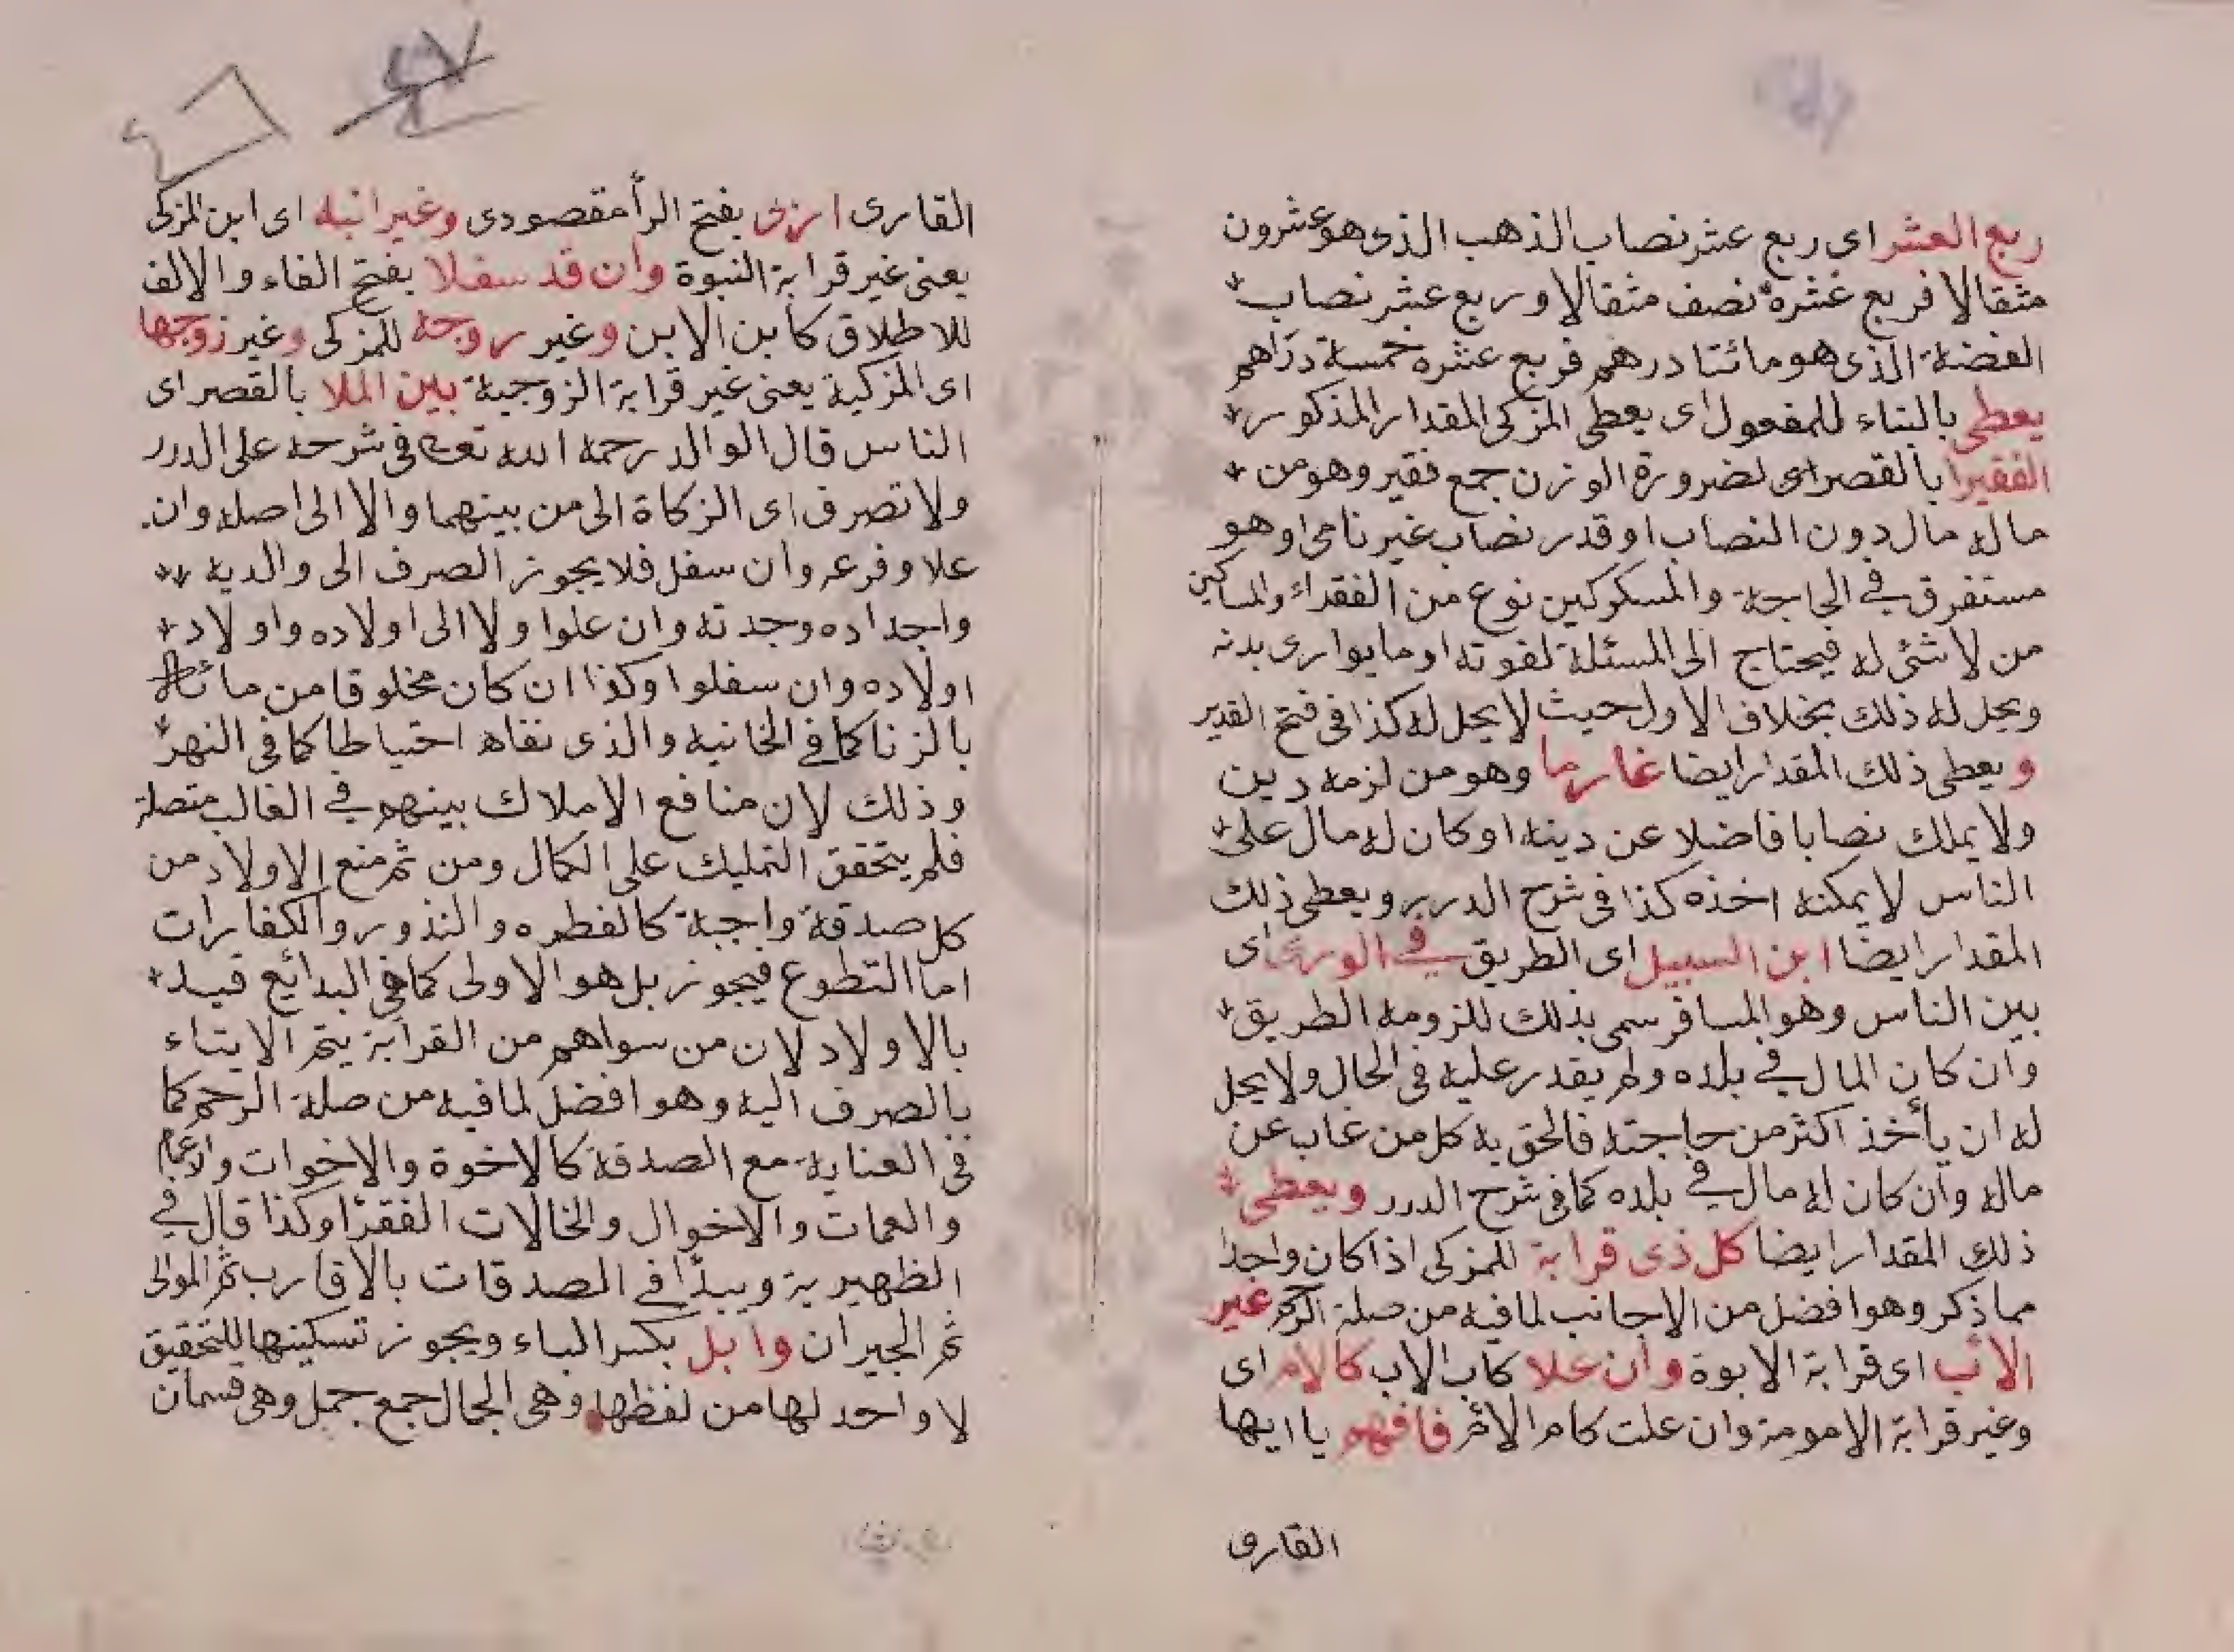 ربع العشر اى ربع عشر نصاب الذهب الذى هو عشرون
مثقالا فربع عشره نصف مثقالا وربع عشر نصاب
الفضة الذى هو مائتا درهم فربع عشره خمسة دراهم
يعطى بالبناء للمفعول اى يعطى المزكى المقدار المذكور
الفقيرا بالقصر اى لضرورة الوزن جمع فقير وهو من
ماله مال دون النصاب او قدر نصاب غير نامى او هو
مستفرق في الحاجة والمسكوكين نوع من الفقراء والمساكين
من لا شئ له فيحتاج الى المسئلة لقوته او ما يوارى بدنه
ويحل له ذلك بخلاف الاول حيث لا يحل له كذا فى فتح القدير
ويعطى ذلك المقدار ايضا غارما وهو من لزمه دين
ولا يملك نصابا فاضلا عن دينه او كان له مال على
الناس لا يمكنه اخذه كذا فى شرح الدرر ويعطى ذلك
المقدار ايضا ابن السبيل اى الطريق في الورى اى
بين الناس وهو المسافر سمى بذلك للزومه الطريق
وان كان المال في بلده ولم يقدر عليه فى الحال ولا يحل
له ان يأخذ اكثر من حاجته فالحق به كل من غاب عن
ماله وان كان له مال في بلده كما فى شرح الدرر ويعطى
ذلك المقدار ايضا كل ذى قرابة للمزكى اذا كان واحدا
مما ذكر وهو افضل من الاجانب لما فيه من صلة الرحم غير
الاب اى قرابة الابوة وان علا كاب الاب كالام اى
وغير قرابة الامومة وان علت كام الام فافهم يا ايها
القارى
القارى ازى بفتح الرأ مقصودى وغير ابنه اى ابن المزكى
يعنى غير قرابة النبوة وان قد سفلا بفتح الفاء والالف
للاطلاق كابن الابن وغير زوجة للمزكى وغير زوجها
اى المزكية يعنى غير قرابة الزوجية بين الملا بالقصر اى
الناس قال الوالد رحمه الله تعالى فى شرحه على الدرر
ولا تصرف اى الزكاة الى من بينهما والا الى اصله وان
علا وفرعه وان سفل فلا يجوز الصرف الى والديه
واجداده وجدته وان علوا ولا الى اولاده واولاد
اولاده وان سفلوا وكذا ان كان مخلوقا من مائه
بالزنا كما في الخانيه والذى نفاه احتياطا كما فى النهر
وذلك لان منافع الاملاك بينهم في الغالب متصلة
فلم يتحقق التمليك على الكمال ومن ثم منع الاولاد من
كل صدقة واجبة كالفطره والنذور والكفارات
اما التطوع فيجوز بل هو الاولى كما فى البدائع قيد
بالاولاد لان من سواهم من القرابة يتم الايتاء
بالصرف اليه وهو افضل لما فيه من صلة الرحم كما
فى العناية مع الصدقة كالاخوة والاخوات والاعمام
والعمات والاخوال والخالات الفقرا وكذا قال في
الظهيرية ويبدأ في الصدقات بالاقارب ثم الموالى
ثم الجيران وابل بكسر الباء ويجوز تسكينها للتحقيق
لا واحد لها من لفظها وهى الجمال جمع جمل وهى قسمان